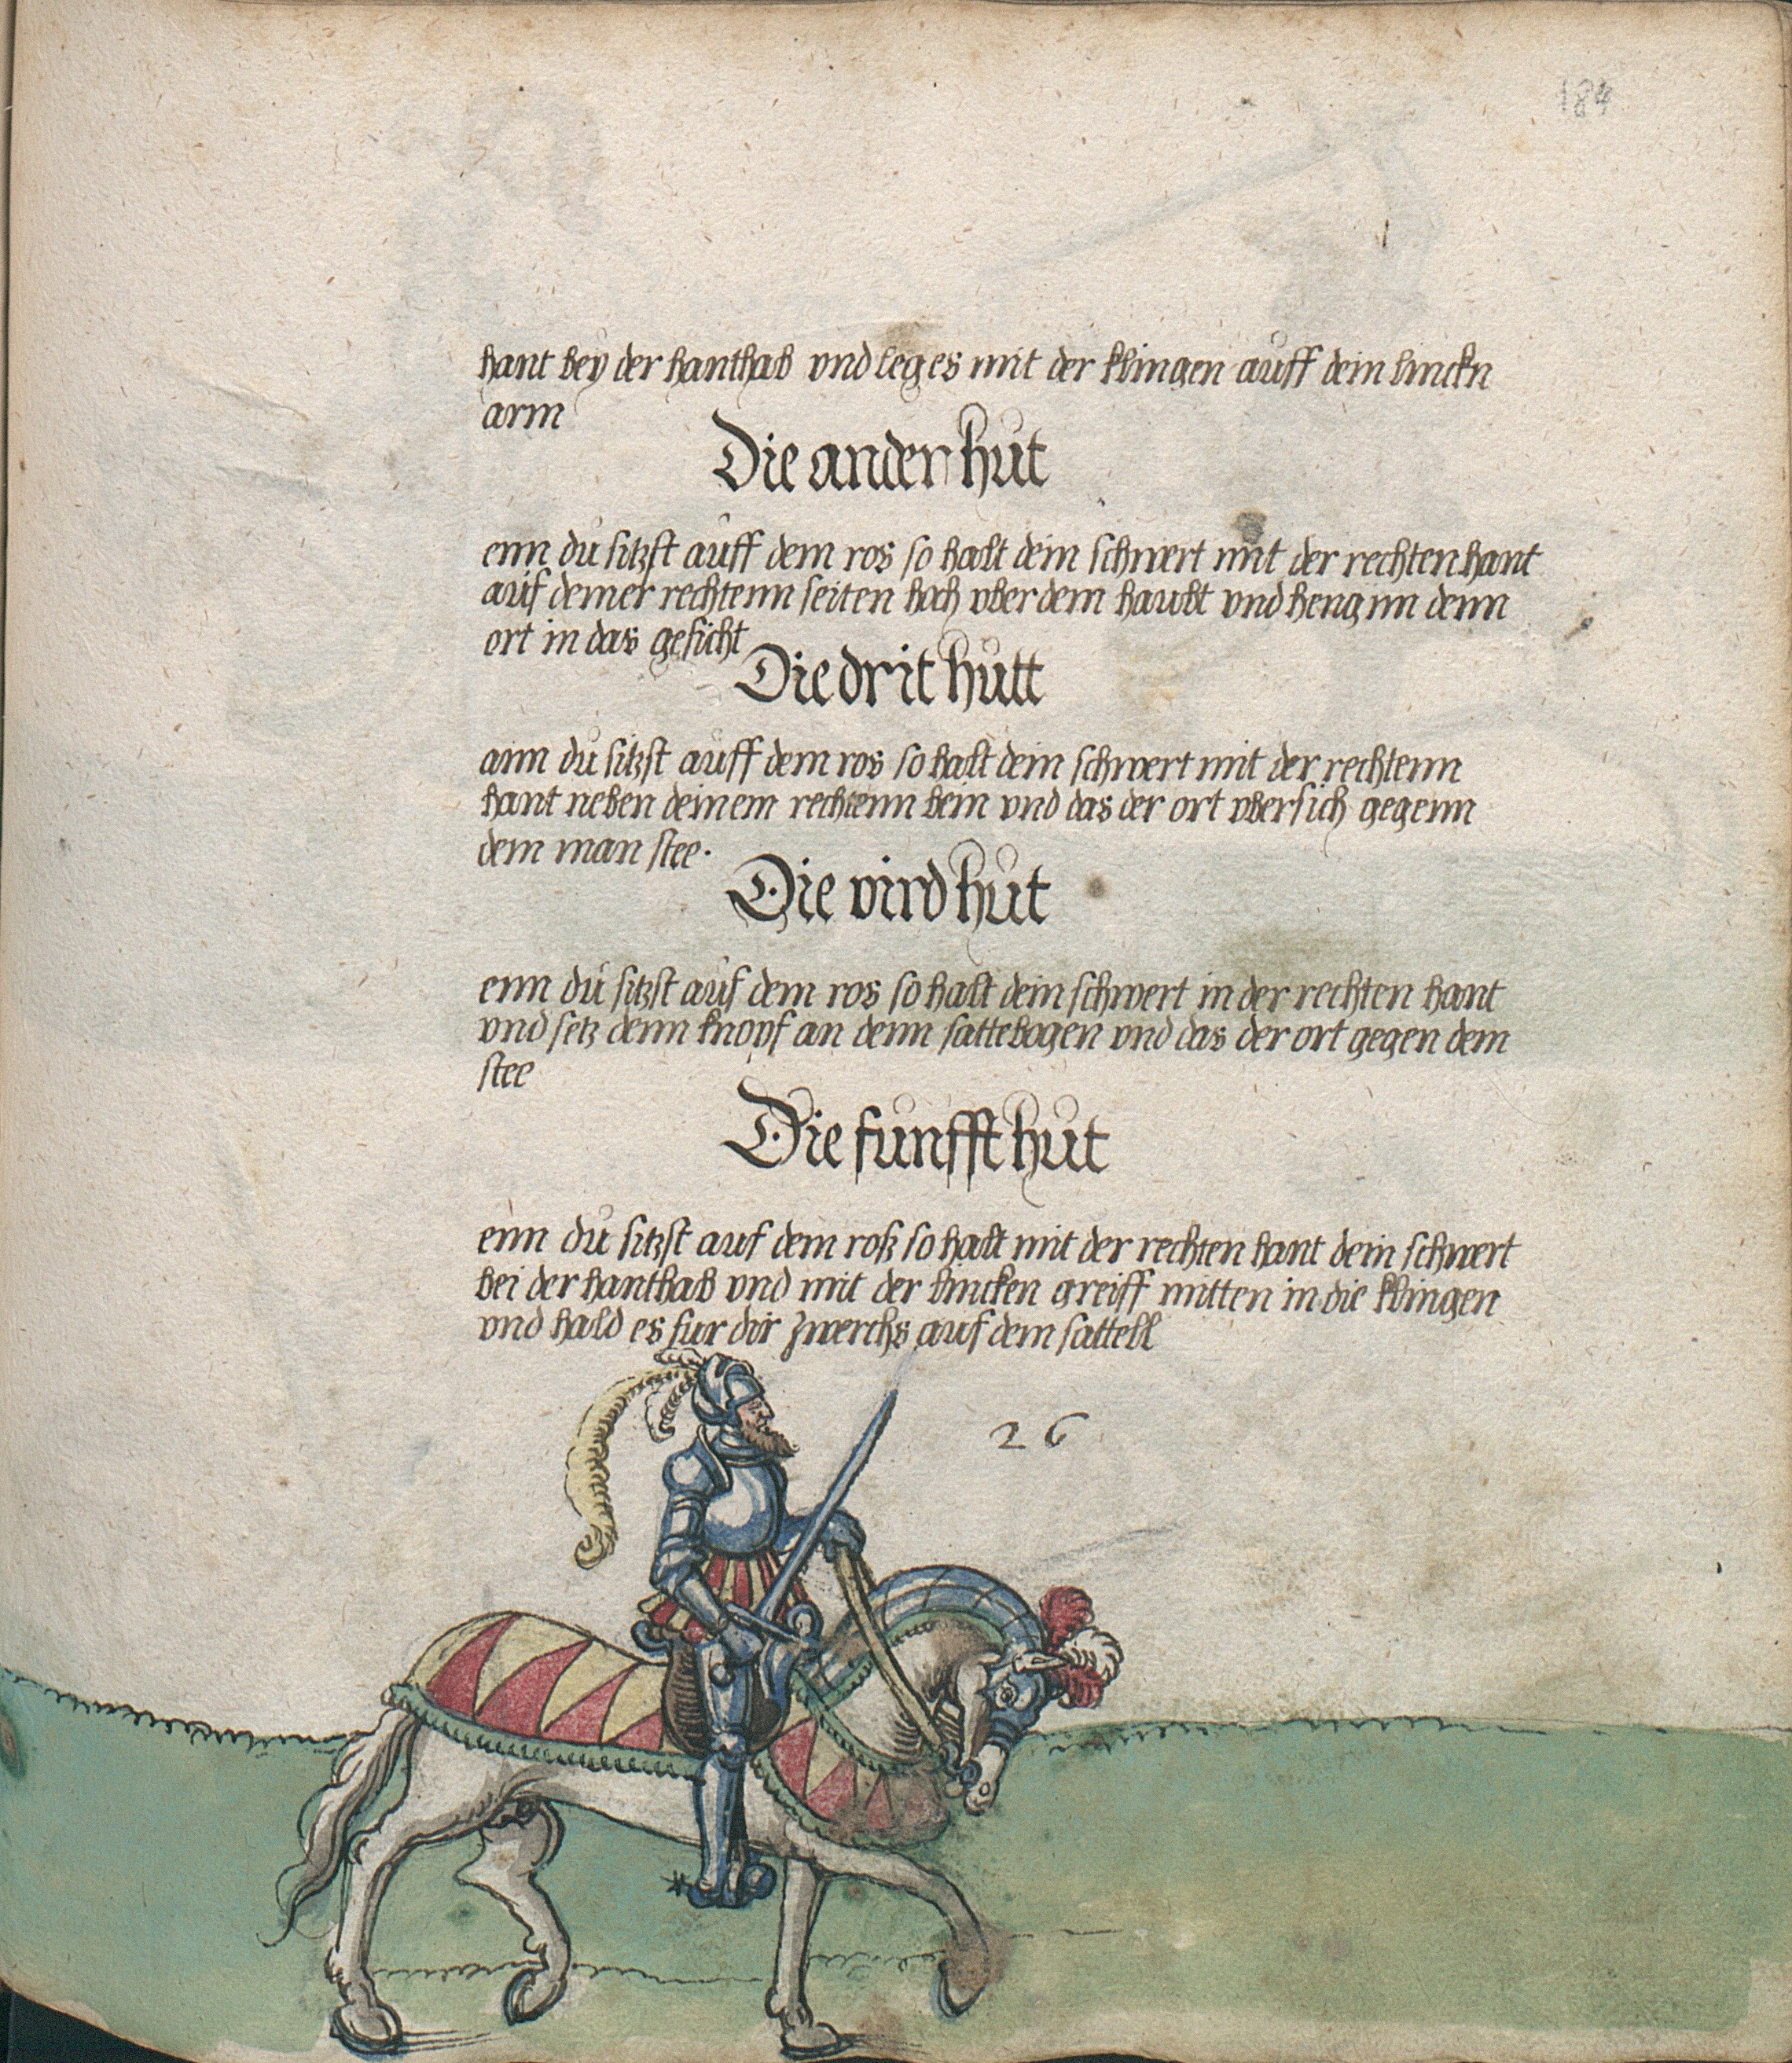 184
hant bey der hanthab vnd leg es mit der klingen auff dein linckn
arm
Die ander hůt
enn dů sitzst aůff dem ros so halt dein schwert mit der rechten hant
aůf deiner rechtenn seiten hoch vber dem haubt vnd heng im denn
ort in das gesicht
Die drit hůtt
ann dů sitzst aůff dem ros so halt dein schwert mit der rechtenn
hant neben deinem rechtenn bein vnd das der ort vbersich gegenn
dem man stee.
Die vird hůt
enn dů sitzst aůf dem ros so halt dein schwert in der rechten hant
vnd setz denn knopf an denn sattebogen vnd das der ort gegen dem
stee
Die fůnfft hůt
enn dů sitzst auf dem roß so halt mit der rechten hant dein schwert
bei der hanthab vnd mit der lincken greiff mitten in die klingen
vnd hald es fur dir zwerchs auf dem sattell
26